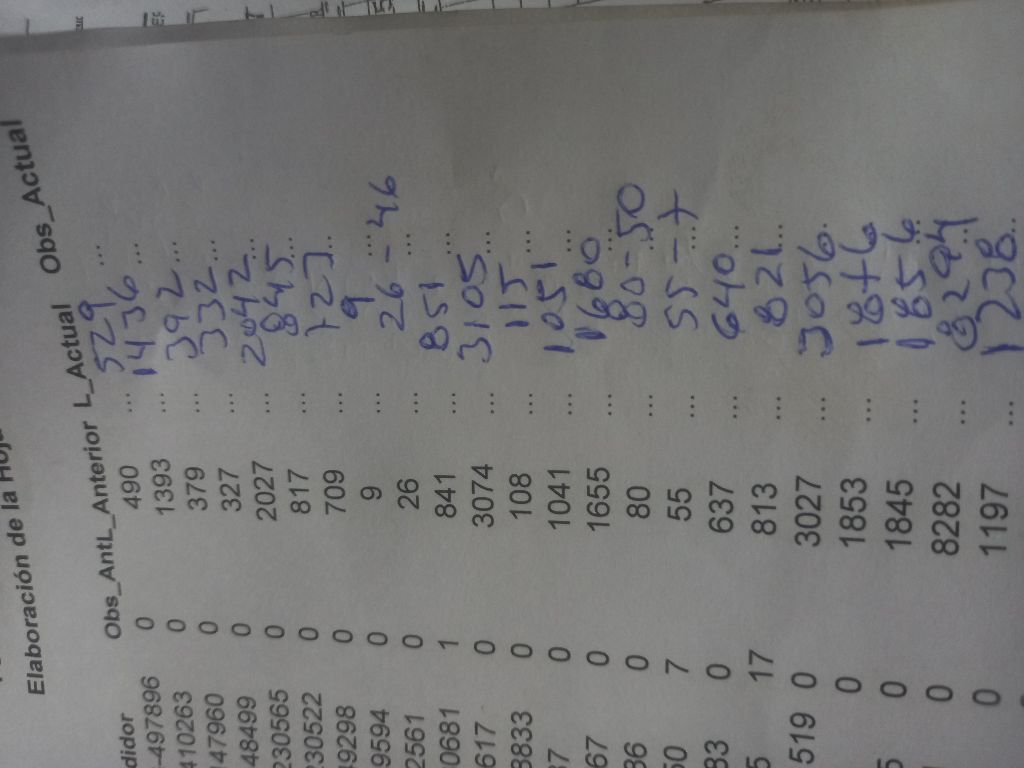 Elaboración de la Hoj
didor Obs_AntL_Anterior L_Actual Obs_Actual
-497896 0 490 ... 529 ...
410263 0 1393 ... 1436 ...
147960 0 379 ... 392 ...
48499 0 327 ... 332 ...
230565 0 2027 ... 2042 ...
230522 0 817 ... 845 ...
49298 0 709 ... 723 ...
9594 0 9 ... 9 ...
2561 0 26 ... 26 - 46 ...
0681 1 841 ... 851 ...
617 0 3074 ... 3105 ...
8833 0 108 ... 115 ...
37 0 1041 ... 1051 ...
67 0 1655 ... 1680 ...
86 0 80 ... 80 - 50 ...
50 7 55 ... 55 - 7 ...
83 0 637 ... 640 ...
5 17 813 ... 821 ...
519 0 3027 ... 3056 ...
0 1853 ... 1876 ...
5 0 1845 ... 1856 ...
0 8282 ... 8294 ...
0 1197 ... 1238 ...